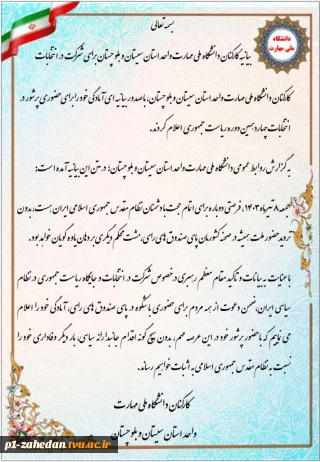 بسمه تعالی
دانشگاه
ملی مهارت
بیانیه کارکنان دانشگاه ملی مهارت واحد استان سیستان و بلوچستان برای شرکت در انتخابات
کارکنان دانشگاه ملی مهارت واحد استان سیستان و بلوچستان، با صدور بیانیه ای آمادگی خود را برای حضوری پرشور در
انتخابات چهاردهمین دوره ریاست جمهوری اعلام کردند.
به گزارش روابط عمومی دانشگاه ملی مهارت واحد استان سیستان و بلوچستان؛ در متن این بیانیه آمده است:
جمعه ۸ تیرماه ۱۴۰۳، فرصتی دوباره برای اتمام حجت با دشمنان نظام مقدس جمهوری اسلامی ایران هست، بدون
تردید حضور ملت همیشه در صحنه کشورمان پای صندوق های رای، مشت محکم دیگری بر دهان یاوه گویان خواهد بود.
با عنایت به بیانات و تاکید مقام معظم رهبری در خصوص شرکت در انتخابات و جایگاه ریاست جمهوری در نظام
سیاسی ایران، ضمن دعوت از همه مردم برای حضوری باشکوه در پای صندوق های رای، آمادگی خود را اعلام
می نماییم که با حضور پرشور خود در این عرصه مهم، بدون هیچ گونه اقدام جانبدارانه سیاسی، بار دیگر وفاداری خود را
نسبت به نظام مقدس جمهوری اسلامی به اثبات خواهیم رساند.
کارکنان دانشگاه ملی مهارت
واحد استان سیستان و بلوچستان
p1-zahedan.tvu.ac.ir